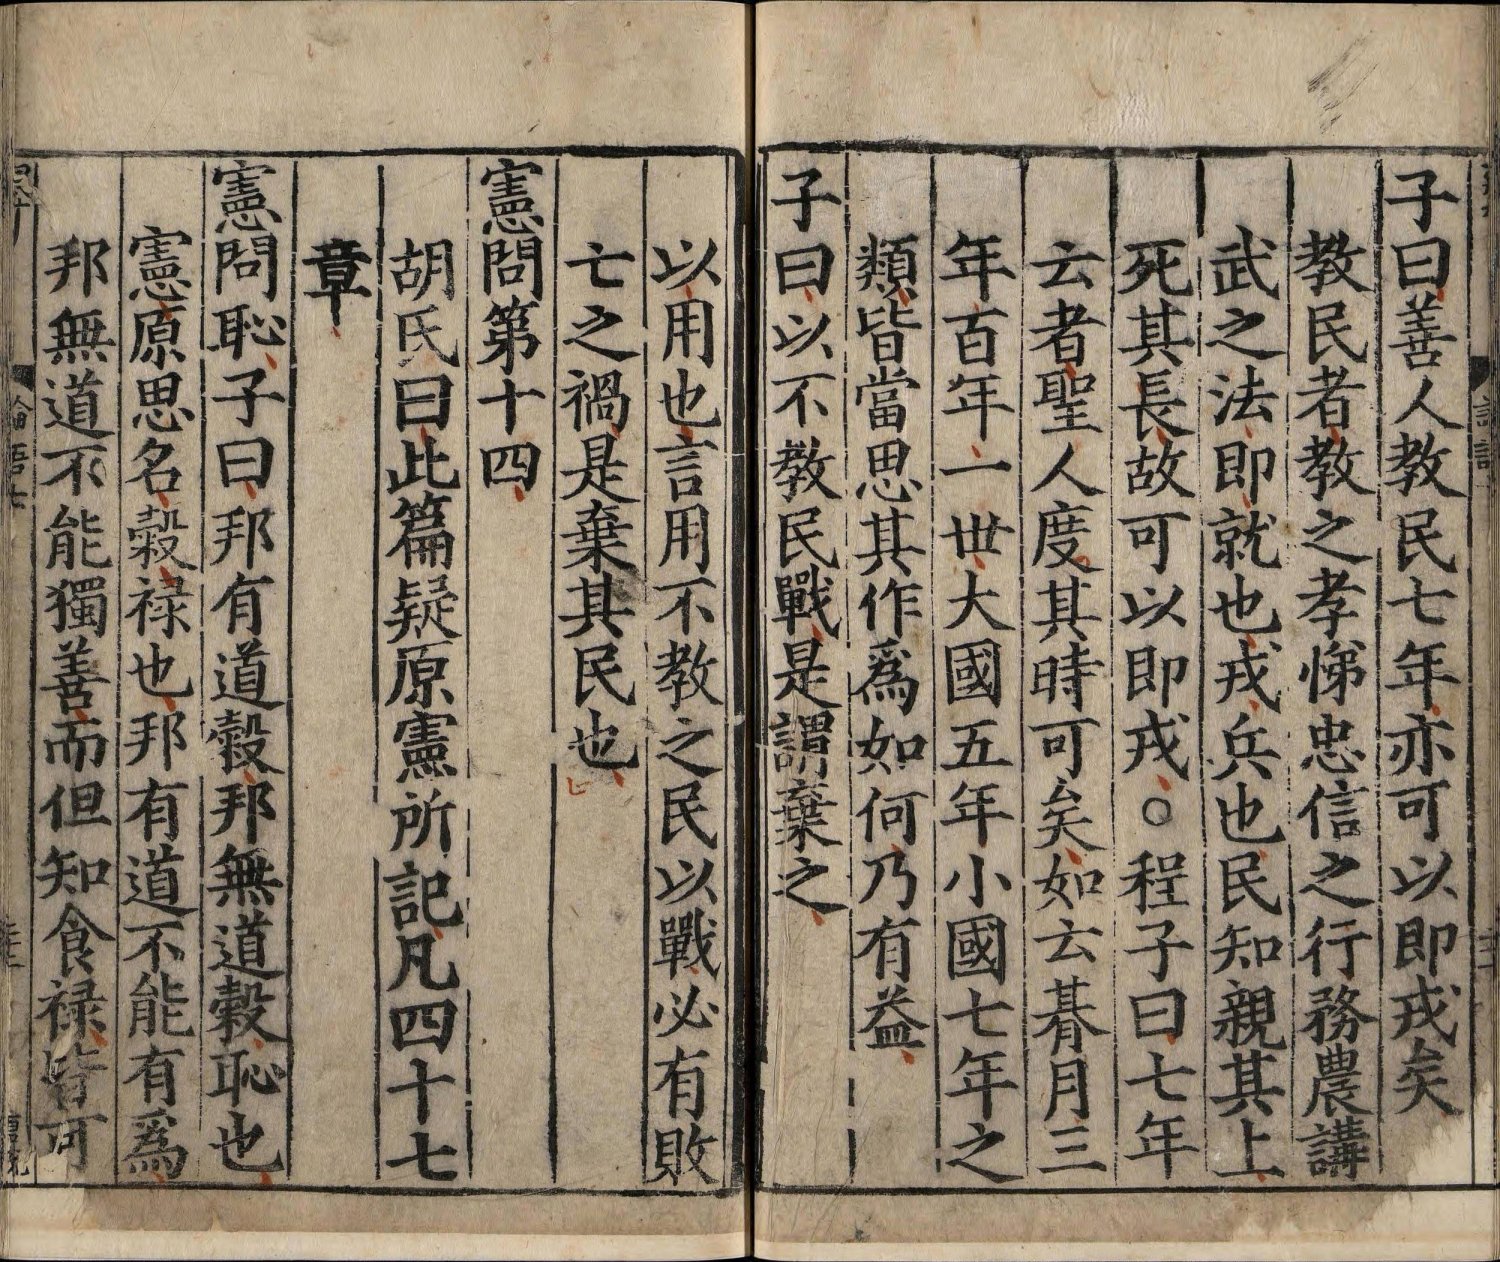 子曰善人教民七年亦可以即戎矣
教民者教之孝悌忠信之行務農講
武之法即就也戎兵也民知親其上
死其長故可以即戎○程子曰七年
云者聖人度其時可矣如云朞月三
年百年一世大國五年小國七年之
類皆當思其作爲如何乃有益
子曰以不教民戰是謂棄之
以用也言用不教之民以戰必有敗
亡之禍是棄其民也
憲問第十四
胡氏曰此篇疑原憲所記凡四十七
章
憲問恥子曰邦有道穀邦無道穀恥也
憲原思名穀禄也邦有道不能有爲
邦無道不能獨善而但知食禄皆可
論語七